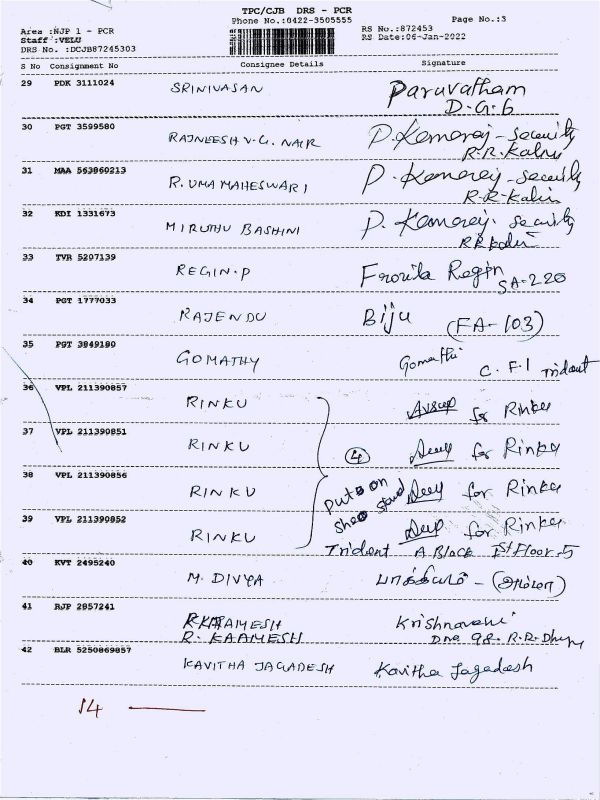 TPC/CJB DRS - PCR
Phone No.:0422-3505555
Page No.:3
Area :NJP 1 - PCR
RS No.:872453
Staff :VELU
RS Date:06-Jan-2022
DRS No. :DCJB87245303
S No Consignment No Consignee Details Signature
29 PDK 3111024 SRINIVASAN Paruvatham
D.G.6
30 PGT 3599580 RAJNEESH V.G. NAIR P. Kamaraj - Security
R.R. Kalin
31 MAA 563860213 R. UMA MAHESWARI P. Kamaraj - Security
R.R. Kalin
32 KDI 1331673 MIRUTHU BASHINI P. Kamaraj. Security
RR Kalin
33 TVR 5207139 REGIN.P Regin
SA-220
34 PGT 1777033 RAJENDU Biju (FA-103)
35 PGT 3849180 GOMATHY Gomathi C.F-1 Trident
36 VPL 211390857 RINKU for Rinku
37 VPL 211390851 RINKU 4 for Rinku
38 VPL 211390856 RINKU for Rinku
Put on
Shoe stand
39 VPL 211390852 RINKU for Rinku
Trident A Block Ist Floor-5
40 KVT 2495240 M. DIVYA பாக்கியம் - (அம்மா)
41 RJP 2857241 R. KAAMESH Krishnaveni
R. KAAMESH 98. R.R.
42 BLR 5250869857 KAVITHA JAGADESH Kavitha Jagadesh
14